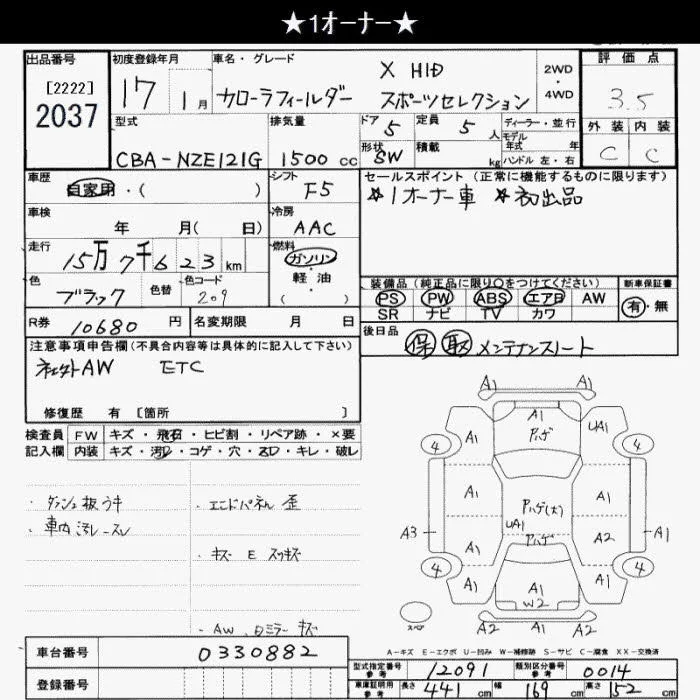 ★1オーナー★
出品番号 初度登録年月 車名・グレード 2WD・4WD 評価点
[2222]
2037
17 1月 カローラフィールダー X HID スポーツセレクション
3.5
型式 排気量 ドア 5 定員 5人 ディーラー・並行 外装 内装
モデル年式 年
CBA-NZE121G 1500 cc 形状 SW 積載 kg ハンドル 左・右 C C
車歴 シフト セールスポイント (正常に機能するものに限ります)
自家用・( ) F5 ☆1オーナー車 ☆初出品
車検 冷房
年 月( 日) AAC
走行 燃料
15万7千623 km ガソリン
軽油
( )
色 色替 色コード 装備品(純正品に限り○をつけてください) 新車保証書
ブラック 209 PS PW ABS エアB AW 有・無
SR ナビ TV カワ
R券 10680 円 名変期限 月 日 後日品
保 取 メンテナンスノート
注意事項申告欄(不具合内容等は具体的に記入して下さい)
社外AW ETC
修復歴 有 [箇所 ]
検査員 FW キズ・飛石・ヒビ割・リペア跡・×要
記入欄 内装 キズ・汚れ・コゲ・穴・スレ・キレ・破レ
・ダッシュ板ウキ ・エンドパネル 歪
・車内汚レースレ
・キズ E スリキズ
・AW、日ミラー キズ
A1
A1
ハゲ
4 A1 UA1 4
A1 ハゲ(大) A1
UA1
A3 A1 ハゲ A2 A1
4 A1 A1 A1 4
W2
A2 A1 A2
スペア
A-キズ E-エクボ U-凹み W-補修跡 S-サビ C-腐食 XX-交換済
車台番号 0330882
型式指定番号 参考 12091 類別区分番号 参考 0014
登録番号 車庫証明用 参考 長さ 441 cm 幅 169 cm 高さ 152 cm